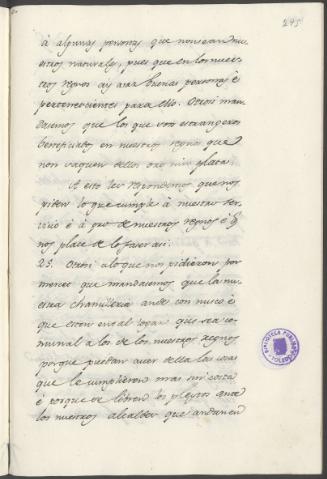 245
à algunas personas que non sean nu
estros naturales, pues que en los nues
tros regnos ay azaz buenas personas è
pertenescientes para ello. Otrosi man
dasemos que los que son estrangeros
beneficiados en nuestros regnos que
non saquen dellos oro nin plata.
A esto les respondemos que nos
piden lo que cumple à nuestro ser
vicio è à pro de nuestros regnos è q
nos place de lo facer asi.
25. Otrosi alo que nos pidieron por
merced que mandasemos que la nu
estra chancilleria ande con nusco è
que esten en al logar que sea co
munal a los de los nuestros regnos
porque puedan aver della las cosas
que le cumplieren mas sin costa
è porque se libren los pleytos ante
los nuestros alcaldes que andan en
BIBLIOTECA PUBLICA
TOLEDO